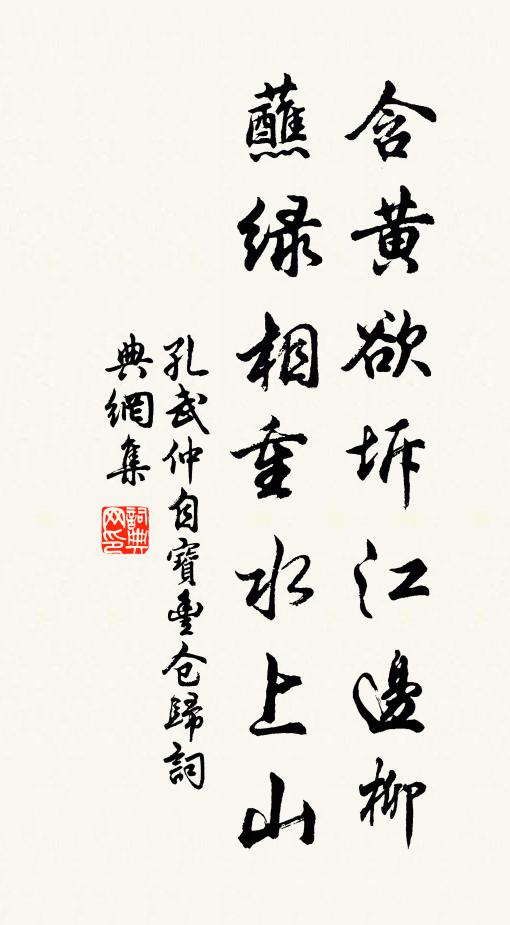 含黄欲坼江邊柳
蘸緑相重水上山
孔武仲自寶豐仓歸詞
典網集
詞典
网印